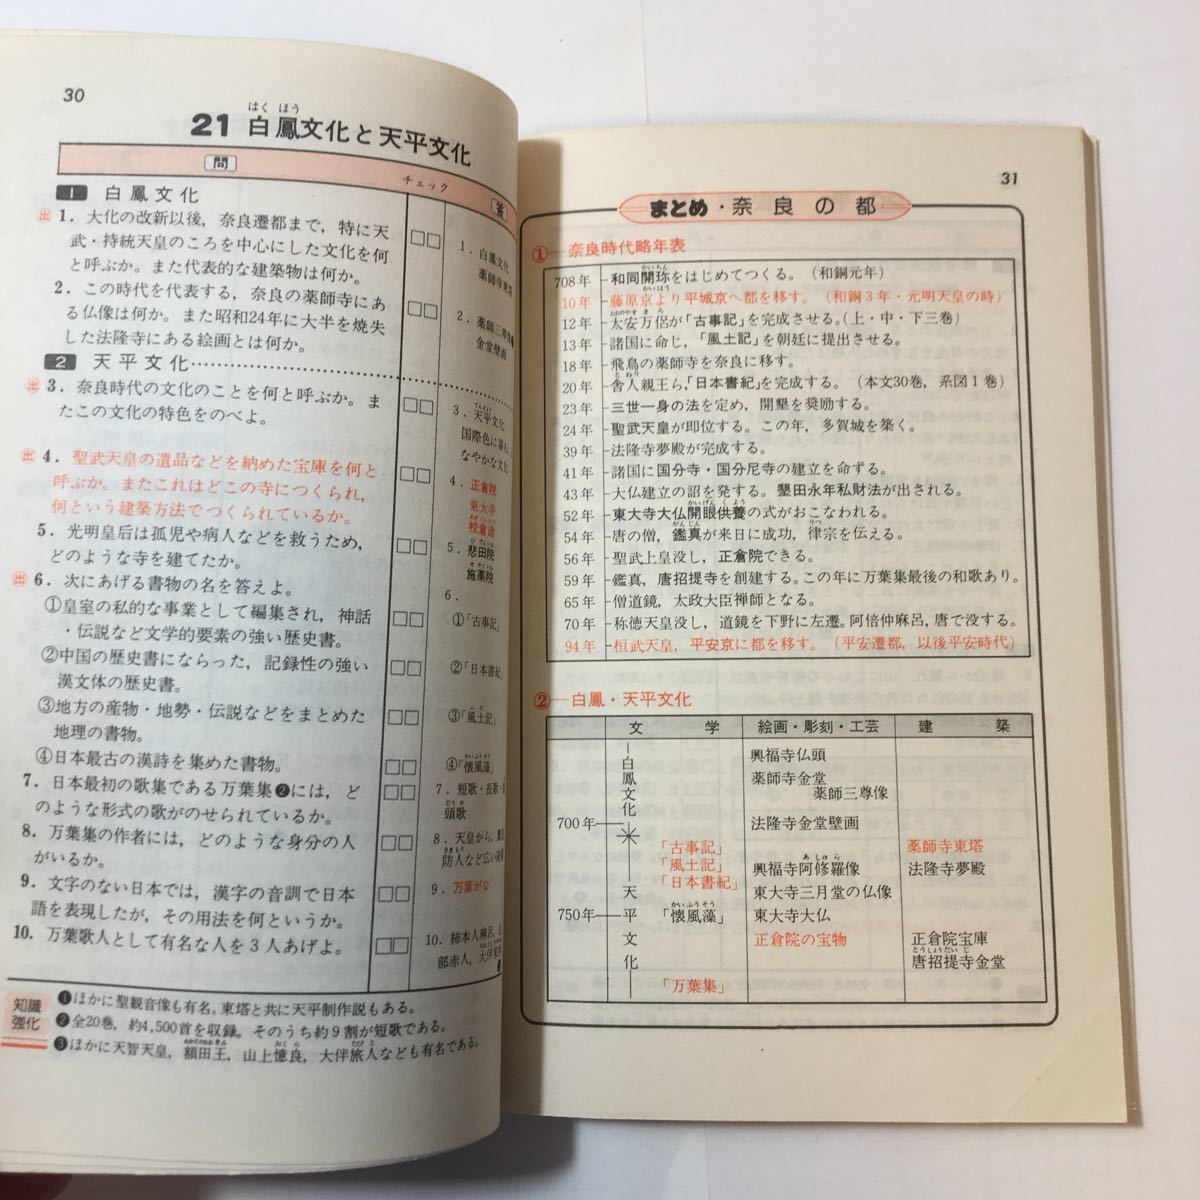 30
21 白鳳文化と天平文化
はくほう
問
チェック
答
1 白鳳文化
出 1. 大化の改新以後，奈良遷都まで，特に天
武・持統天皇のころを中心にした文化を何
と呼ぶか。また代表的な建築物は何か。
2. この時代を代表する，奈良の薬師寺にあ
る仏像は何か。また昭和24年に大半を焼失
した法隆寺にある絵画とは何か。
2 天平文化
出 3. 奈良時代の文化のことを何と呼ぶか。ま
たこの文化の特色をのべよ。
出 4. 聖武天皇の遺品などを納めた宝庫を何と
呼ぶか。またこれはどこの寺につくられ，
何という建築方法でつくられているか。
5. 光明皇后は孤児や病人などを救うため，
どのような寺を建てたか。
出 6. 次にあげる書物の名を答えよ。
①皇室の私的な事業として編集され，神話
・伝説など文学的要素の強い歴史書。
②中国の歴史書にならった，記録性の強い
漢文体の歴史書。
③地方の産物・地勢・伝説などをまとめた
地理の書物。
④日本最古の漢詩を集めた書物。
7. 日本最初の歌集である万葉集❷には，ど
のような形式の歌がのせられているか。
8. 万葉集の作者には，どのような身分の人
がいるか。
9. 文字のない日本では，漢字の音訓で日本
語を表現したが，その用法を何というか。
10. 万葉歌人として有名な人を3人あげよ。
1. 白鳳文化
薬師寺東塔
2. 薬師三尊
金堂壁画
3. 天平文化
てんぴょう
国際色に富む
なやかな文化
4. 正倉院
東大寺
校倉造
あぜくらづくり
5. 悲田院
ひでんいん
施薬院
せやくいん
6.
①「古事記」
②「日本書紀」
③「風土記」
ふどき
④「懐風藻」
かいふうそう
7. 短歌・長歌・
頭歌
どうか
8. 天皇から，
防人など広い
さきもり
9. 万葉がな
10. 柿本人麻呂，
部赤人，大伴
知識
強化
❶ほかに聖観音像も有名。東塔と共に天平制作説もある。
❷全20巻，約4,500首を収録。そのうち約9割が短歌である。
❸ほかに天智天皇，額田王，山上憶良，大伴旅人なども有名である。
31
まとめ・奈良の都
①—奈良時代略年表
708年 和同開珎をはじめてつくる。（和銅元年）
かいちん
かいほう
10年 藤原京より平城京へ都を移す。（和銅3年・元明天皇の時）
12年 太安万侶が「古事記」を完成させる。（上・中・下三巻）
おおのやすまろ
13年 諸国に命じ，「風土記」を朝廷に提出させる。
18年 飛鳥の薬師寺を奈良に移す。
20年 舎人親王ら，「日本書紀」を完成する。（本文30巻，系図1巻）
とねり
23年 三世一身の法を定め，開墾を奨励する。
24年 聖武天皇が即位する。この年，多賀城を築く。
39年 法隆寺夢殿が完成する。
41年 諸国に国分寺・国分尼寺の建立を命ずる。
43年 大仏建立の詔を発する。墾田永年私財法が出される。
52年 東大寺大仏開眼供養の式がおこなわれる。
かいげんくよう
54年 唐の僧，鑑真が来日に成功，律宗を伝える。
がんじん
りつ
56年 聖武上皇没し，正倉院できる。
59年 鑑真，唐招提寺を創建する。この年に万葉集最後の和歌あり。
65年 僧道鏡，太政大臣禅師となる。
70年 称徳天皇没し，道鏡を下野に左遷。阿倍仲麻呂，唐で没する。
94年 桓武天皇，平安京に都を移す。（平安遷都，以後平安時代）
②—白鳳・天平文化
文学 絵画・彫刻・工芸 建築
白鳳文化
興福寺仏頭
薬師寺金堂
薬師三尊像
700年
法隆寺金堂壁画
「古事記」 薬師寺東塔
「風土記」 興福寺阿修羅像 法隆寺夢殿
あしゅら
「日本書紀」 東大寺三月堂の仏像
天平文化
750年 「懐風藻」 東大寺大仏
かいふうそう
正倉院の宝物 正倉院宝庫
唐招提寺金堂
とうしょうだいじ
「万葉集」